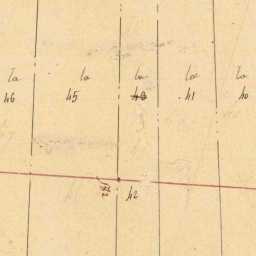 la la la la la
46 45 43 41 40
42